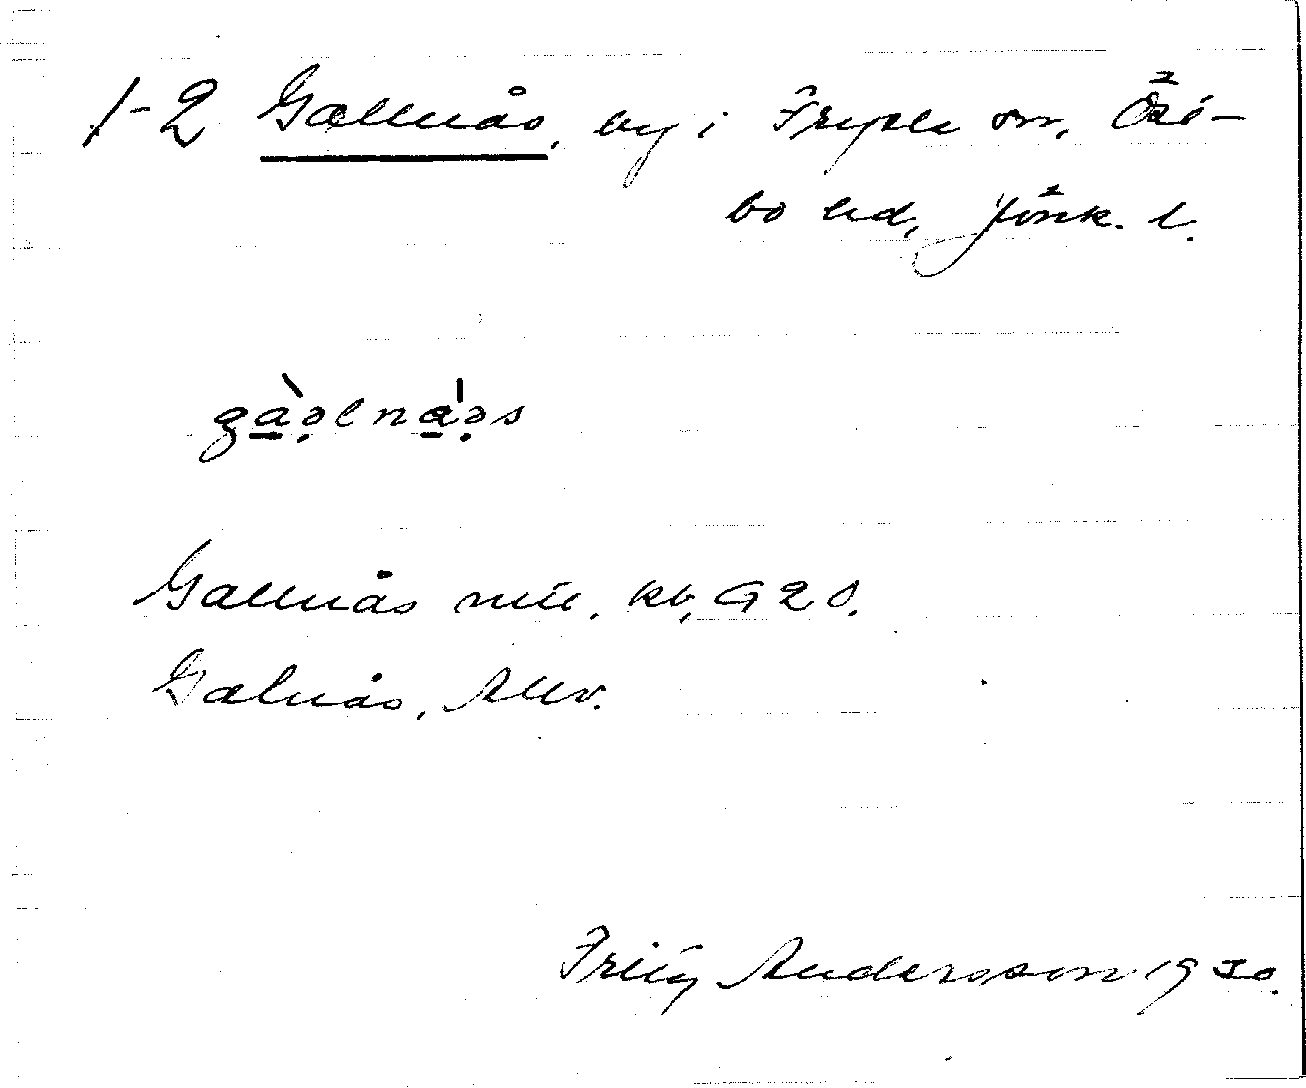 1-2 Gallnås, by i Fryele sn, Östbo hd, Jönk. l.
gàəlnás
Gallnås mtl. kb, G20.
Galnås, Allv.
Fritz Andersson 1930.